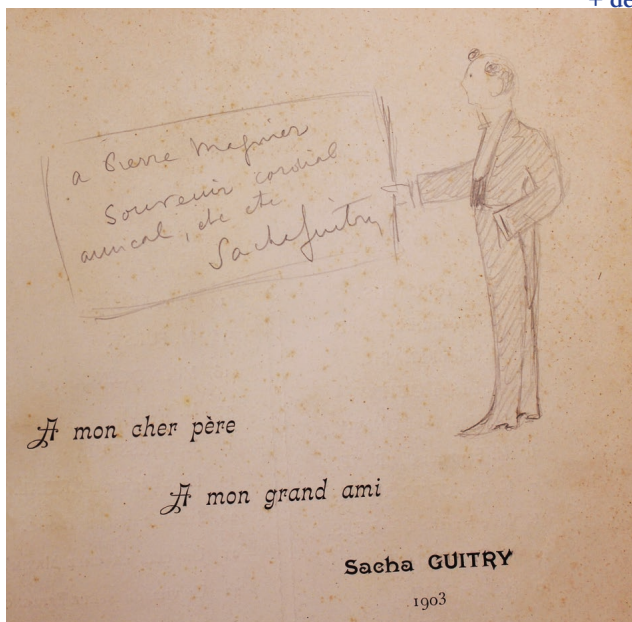 + de
a Pierre Magnier
Souvenir cordial
amical, etc etc
Sacha Guitry
A mon cher père
A mon grand ami
Sacha GUITRY
1903